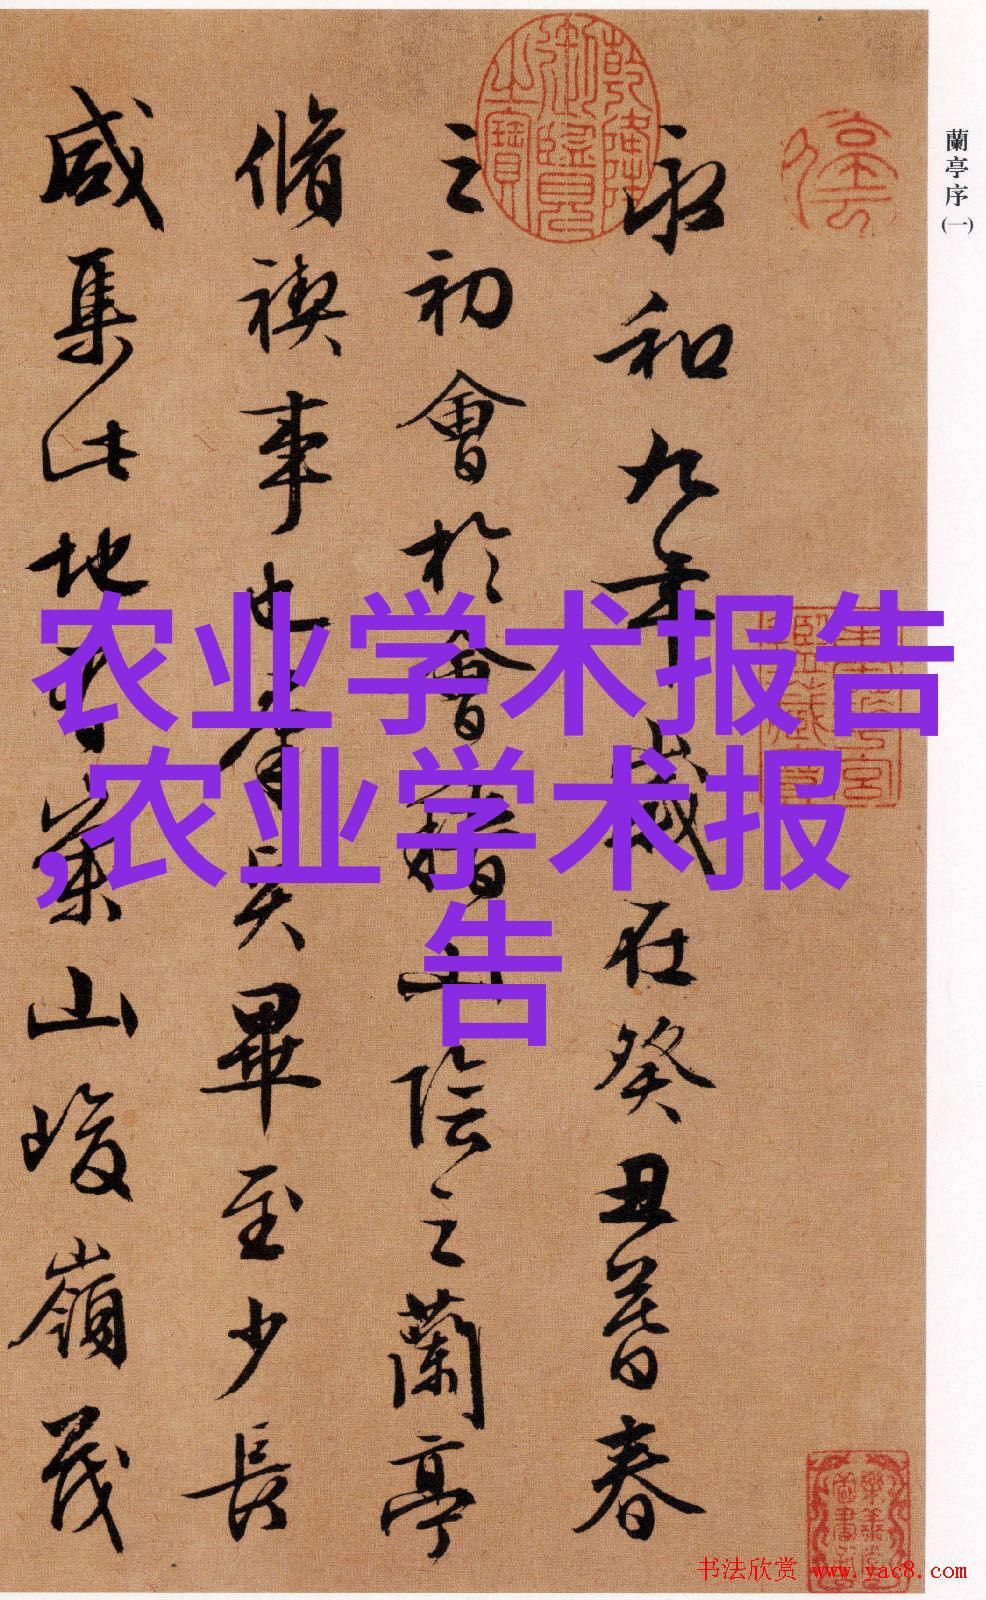 蘭亭序(一)
永和九年歲在癸丑暮春
之初會於會稽山陰之蘭亭
脩禊事也羣賢畢至少長
咸集此地有崇山峻嶺茂
乾隆御覽之寶
农业学术报告
,农业学术报
告
书法欣赏 www.yac8.com